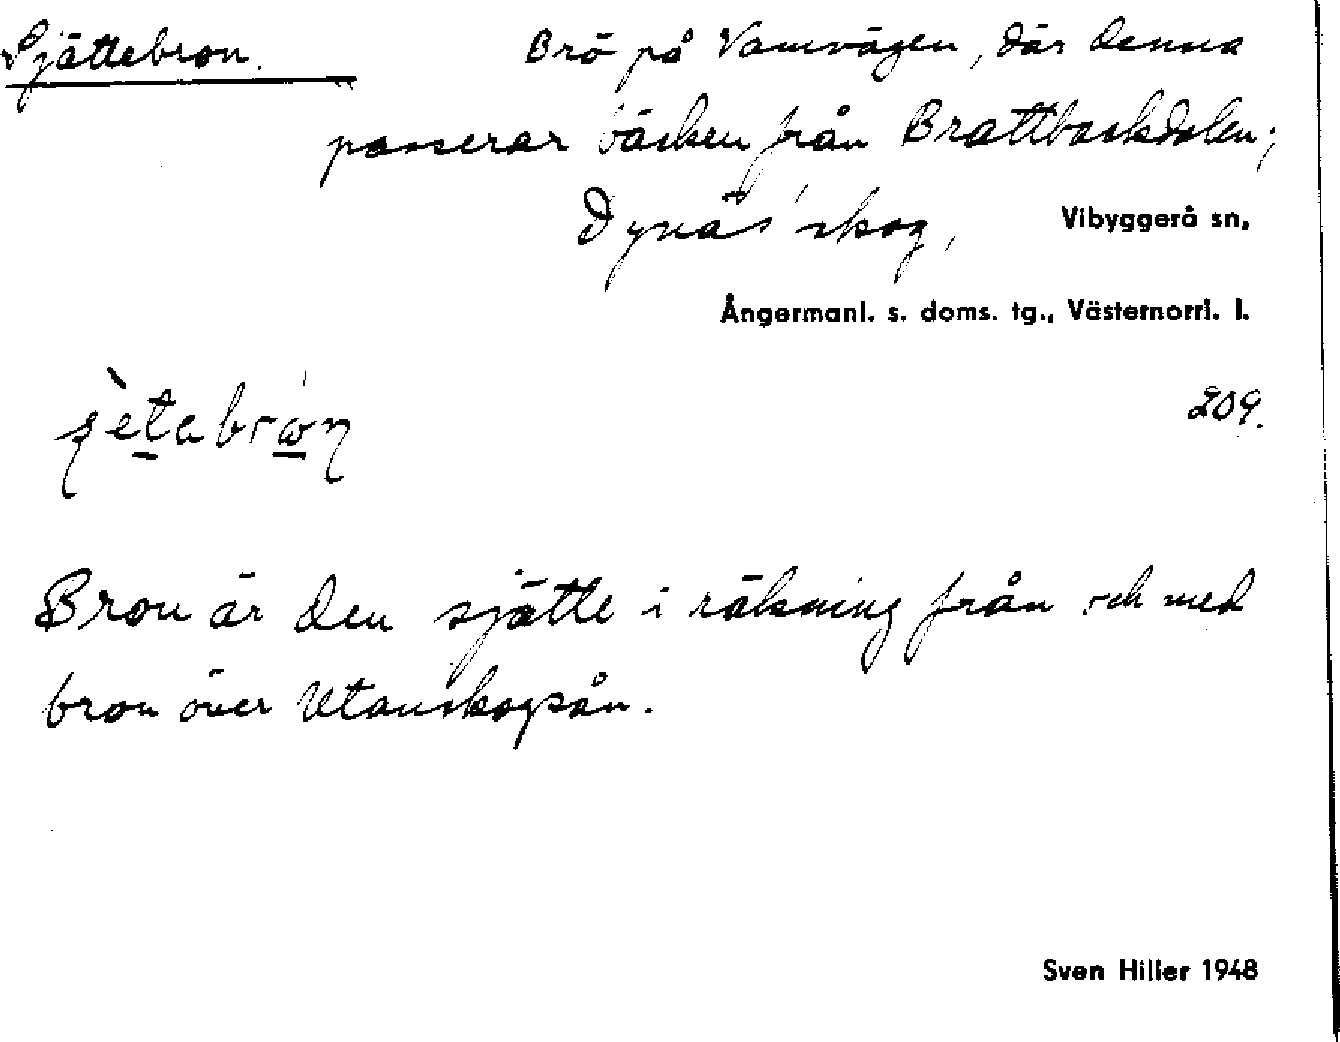 Sjättebron. Bro på Vamvägen, där denna
passerar bäcken från Brattbackdalen;
Dynäs' skog, Vibyggerå sn,
Ångermanl. s. doms. tg., Västernorrl. l.
209.
Bron är den sjätte i räkning från och med
bron över Utanskogsån.
Sven Hiller 1948